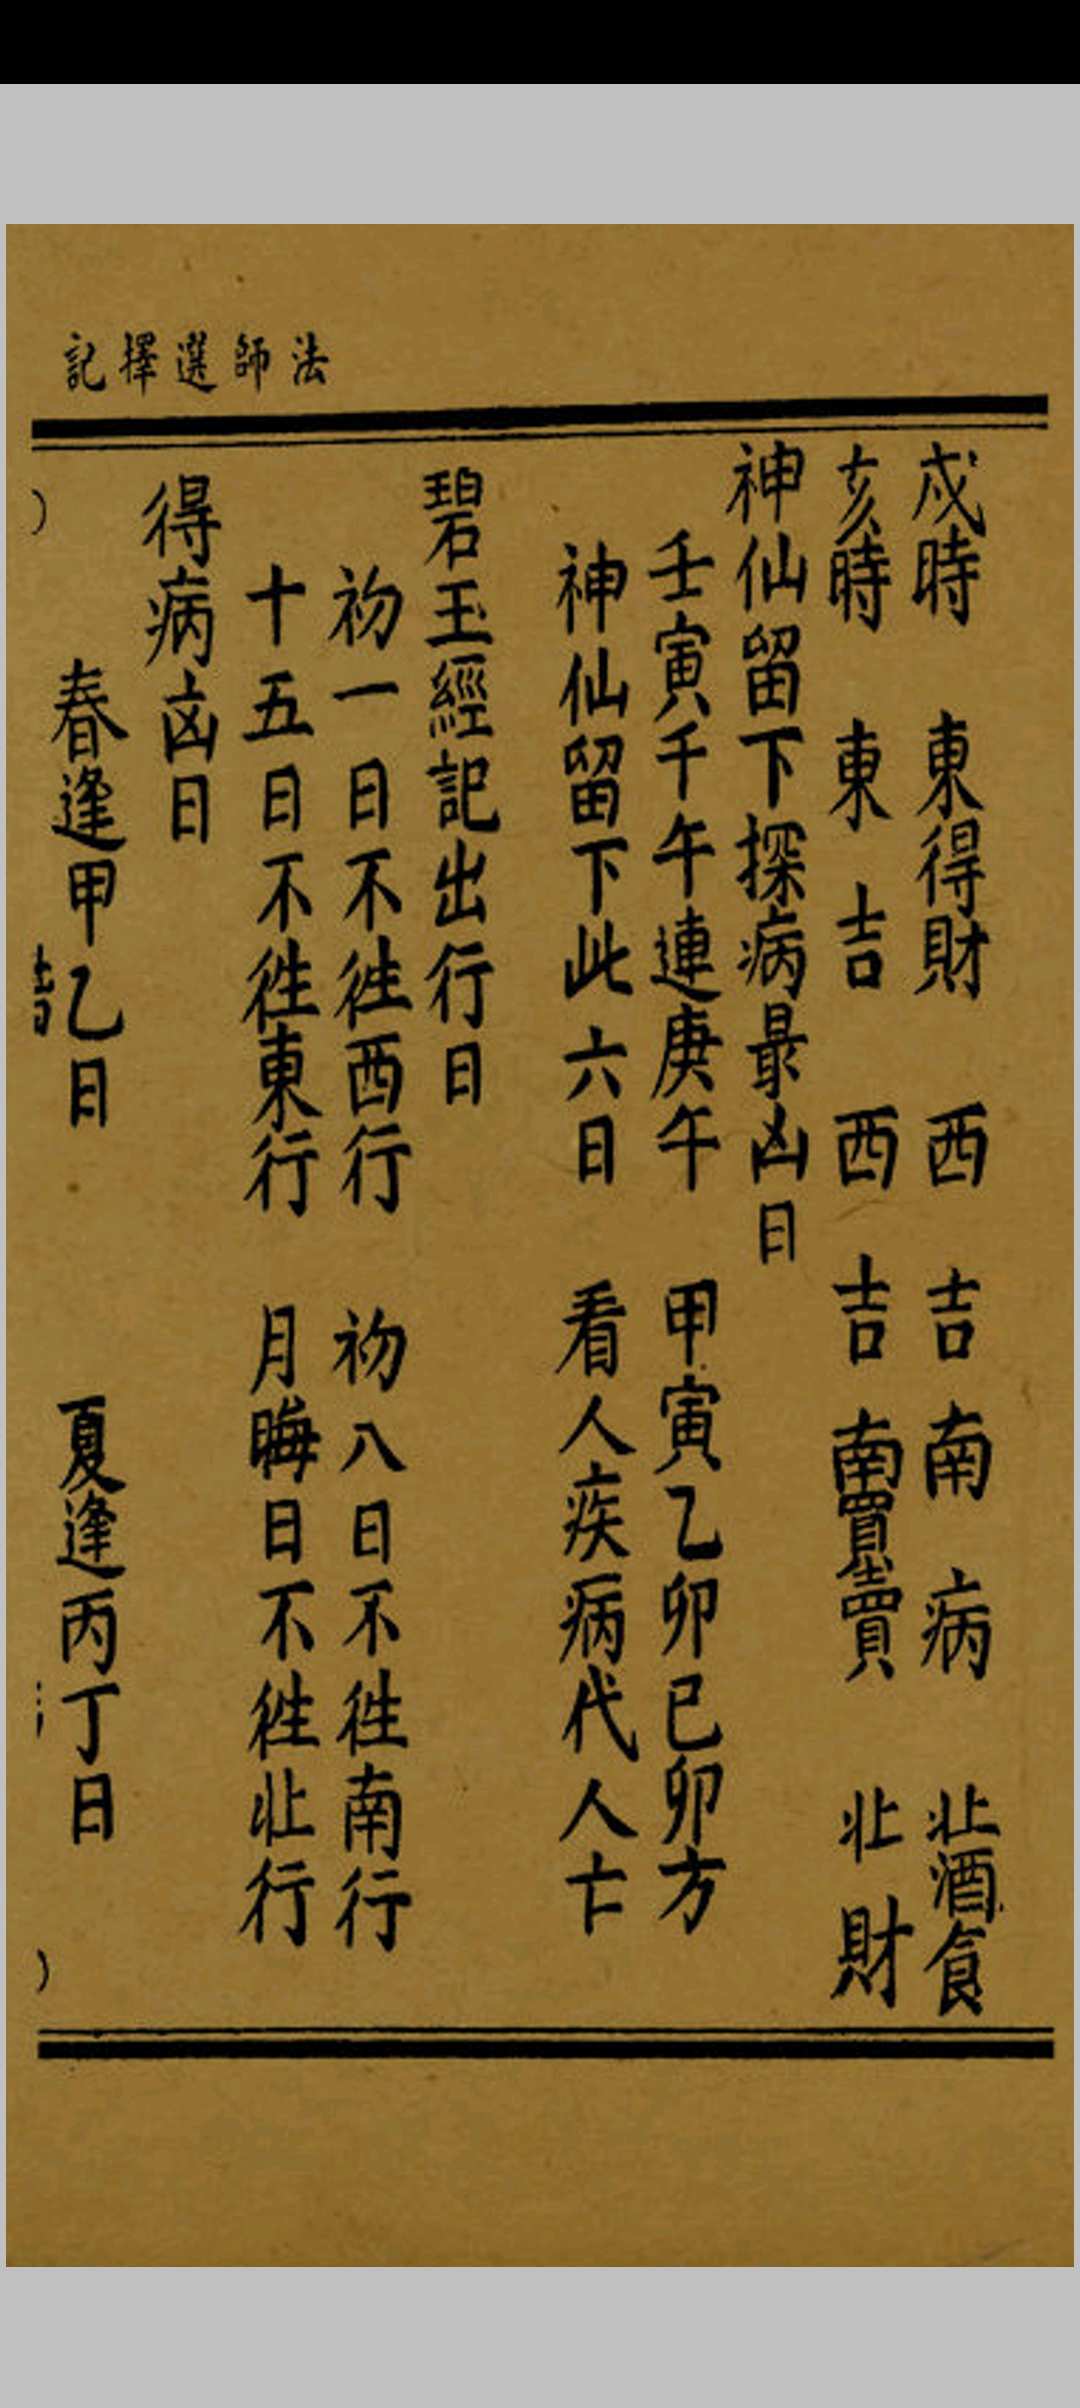 法師選擇記
戌時 東得財 西 吉 南 病 北酒食
亥時 東 吉 西 吉 南買賣 北 財
神仙留下探病最凶日
壬寅千午連庚午 甲寅乙卯已卯方
神仙留下此六日 看人疾病代人亡
碧玉經記出行日
初一日不徃西行 初八日不徃南行
十五日不徃東行 月晦日不徃北行
得病凶日
春逢甲乙日 夏逢丙丁日